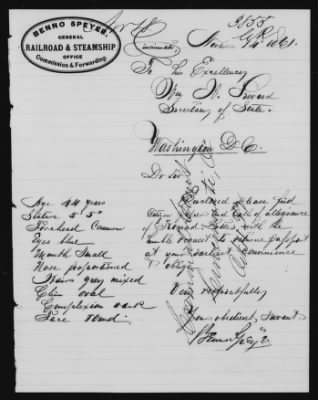 BENNO SPEYER,
GENERAL
RAILROAD & STEAMSHIP
OFFICE
Commission & Forwarding
3855
Cincinnati Nov 1861.
To his Excellency
Wm H. Seward
Secretary of State
Washington D.C.
Dr Sir!
Enclosed please find
Citizen and Oath of allegiance
of with the
humble request to return passport
at your earliest convenience
& oblige
Very respectfully
Your obedient servant
Benno Speyer
Age 44 years
Stature 5' 5"
Forehead Common
Eyes blue
Mouth Small
Nose proportioned
Hair grey mixed
Chin oval
Complexion dark
Face round